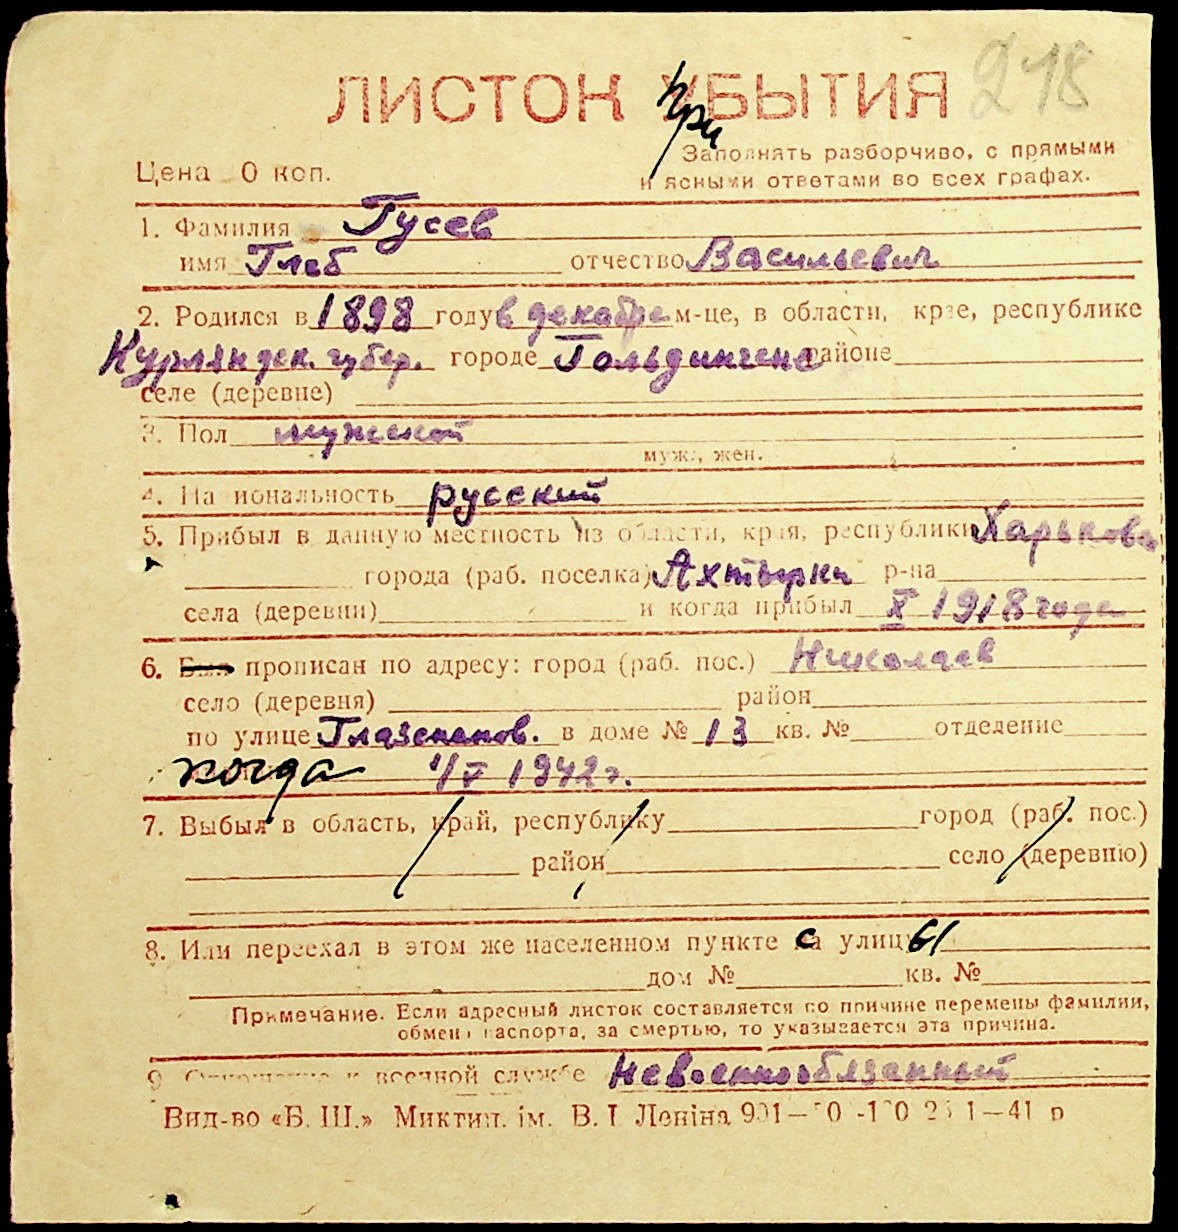 218
ЛИСТОК при УБЫТИЯ
Цена 0 коп.
Заполнять разборчиво, с прямыми
и ясными ответами во всех графах.
1. Фамилия Гусев
имя Глеб отчество Васильевич
2. Родился в 1898 году в декабре м-це, в области, крае, республике
Курляндск. губер. городе Гольдингене районе
селе (деревне)
3. Пол мужской
муж., жен.
4. Национальность русский
5. Прибыл в данную местность из области, края, республики Харькова
города (раб. поселка) Ахтырки р-на
села (деревни) и когда прибыл X 1918 года
6. Был прописан по адресу: город (раб. пос.) Николаев
село (деревня) район
по улице Глазенапов. в доме № 13 кв. № отделение
когда 1/V 1942 г.
7. Выбыл в область, край, республику город (раб. пос.)
район село (деревню)
8. Или переехал в этом же населенном пункте с на улицы
дом № кв. №
Примечание. Если адресный листок составляется по причине перемены фамилии,
обмена паспорта, за смертью, то указывается эта причина.
9. Отношение к военной службе Невоеннообязанный
Вид-во «Б. Ш.» Миктип. ім. В. І Леніна